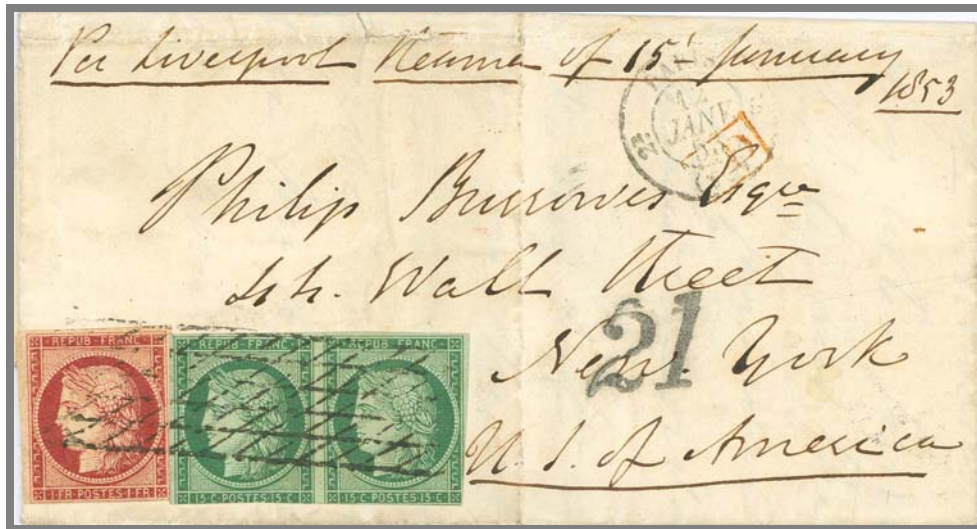 Per Liverpool Steamer of 15t January
1853
PARIS
JANV
Philip Burrowes Esqre
Wall Street
21
New York
U.S. of America
REPUB FRANC
1 FR POSTES 1 FR
REPUB FRANC
15 C POSTES 15 C
REPUB FRANC
15 C POSTES 15 C